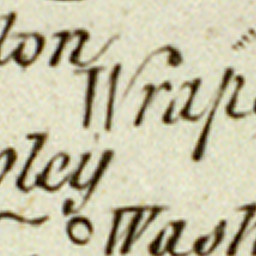 don
Wrap
pley
Wash